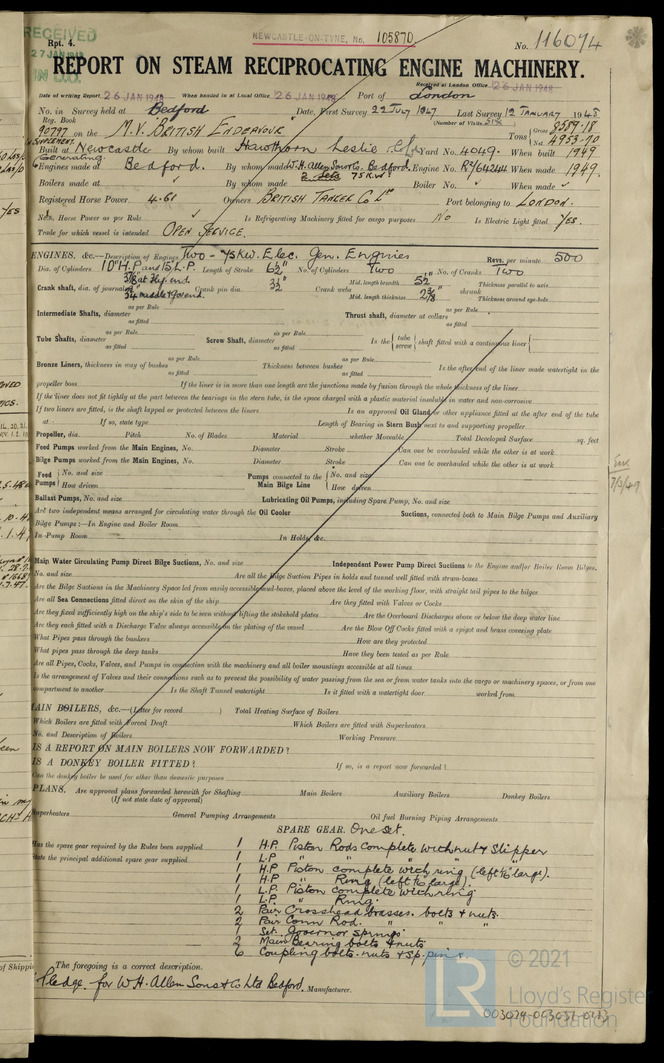 RECEIVED
27 JAN 1948
IN D.O.
NEWCASTLE-ON-TYNE, No. 105870
Rpt. 4.
No. 116074
REPORT ON STEAM RECIPROCATING ENGINE MACHINERY.
Received at London Office 26 JAN 1948
Date of writing Report 26 JAN 1948 When handed in at Local Office 26 JAN 1948 Port of London
No. in Survey held at Bedford Date, First Survey 22 July 1947 Last Survey 12 January 1948
Reg. Book (Number of Visits Six)
90797 on the M.V. "British Endeavour" Tons Gross 8589.18 Net 4953.90
Built at Newcastle By whom built Hawthorn Leslie & Co Ltd Yard No. 4049. When built 1949
Generating
Engines made at Bedford. By whom made W.H. Allen Sons & Co. Bedford. Engine No. When made 1949.
2 Sets 75 K.W.
Boilers made at By whom made Boiler No. When made
Registered Horse Power 4.61 Owners British Tanker Co Ld Port belonging to London.
Nom. Horse Power as per Rule Is Refrigerating Machinery fitted for cargo purposes No Is Electric Light fitted Yes.
Trade for which vessel is intended Open Service.
ENGINES, &c.—Description of Engines Two - 75 Kw. Elec. Gen. Engines Revs. per minute 500
Dia. of Cylinders 10" H.P. and 15" L.P. Length of Stroke 6½" No. of Cylinders Two No. of Cranks Two
Crank shaft, dia. of journals as per Rule as fitted Crank pin dia. 3½" Crank webs Mid. length breadth Mid. length thickness shrunk Thickness parallel to axis Thickness around eye-hole
Intermediate Shafts, diameter as per Rule as fitted Thrust shaft, diameter at collars as per Rule as fitted
Tube Shafts, diameter as per Rule as fitted Screw Shaft, diameter as per Rule as fitted Is the tube screw shaft fitted with a continuous liner
Bronze Liners, thickness in way of bushes as per Rule as fitted Thickness between bushes as per Rule as fitted Is the after end of the liner made watertight in the
propeller boss If the liner is in more than one length are the junctions made by fusion through the whole thickness of the liner
If the liner does not fit tightly at the part between the bearings in the stern tube, is the space charged with a plastic material insoluble in water and non-corrosive
If two liners are fitted, is the shaft lapped or protected between the liners Is an approved Oil Gland or other appliance fitted at the after end of the tube
If so, state type Length of Bearing in Stern Bush next to and supporting propeller
Propeller, dia. Pitch No. of Blades Material whether Moveable Total Developed Surface sq. feet
Feed Pumps worked from the Main Engines, No. Diameter Stroke Can one be overhauled while the other is at work
Bilge Pumps worked from the Main Engines, No. Diameter Stroke Can one be overhauled while the other is at work
Feed Pumps No. and size How driven Pumps connected to the Main Bilge Line No. and size How driven
Ballast Pumps, No. and size Lubricating Oil Pumps, including Spare Pump, No. and size
Are two independent means arranged for circulating water through the Oil Cooler Suctions, connected both to Main Bilge Pumps and Auxiliary
Bilge Pumps:—In Engine and Boiler Room
In Pump Room In Holds, &c.
Main Water Circulating Pump Direct Bilge Suctions, No. and size Independent Power Pump Direct Suctions to the Engine and/or Boiler Room Bilges,
No. and size Are all the Bilge Suction Pipes in holds and tunnel well fitted with strum-boxes
Are the Bilge Suctions in the Machinery Space led from easily accessible mud-boxes, placed above the level of the working floor, with straight tail pipes to the bilges
Are all Sea Connections fitted direct on the skin of the ship Are they fitted with Valves or Cocks
Are they fixed sufficiently high on the ship's side to be seen without lifting the stokehold plates Are the Overboard Discharges above or below the deep water line
Are they each fitted with a Discharge Valve always accessible on the plating of the vessel Are the Blow Off Cocks fitted with a spigot and brass covering plate
What Pipes pass through the bunkers How are they protected
What pipes pass through the deep tanks Have they been tested as per Rule
Are all Pipes, Cocks, Valves, and Pumps in connection with the machinery and all boiler mountings accessible at all times
Is the arrangement of Valves and their connections such as to prevent the possibility of water passing from the sea or from water tanks into the cargo or machinery spaces, or from one
compartment to another Is the Shaft Tunnel watertight Is it fitted with a watertight door worked from
MAIN BOILERS, &c.—(Letter for record ) Total Heating Surface of Boilers
Which Boilers are fitted with Forced Draft Which Boilers are fitted with Superheaters
No. and Description of Boilers Working Pressure
IS A REPORT ON MAIN BOILERS NOW FORWARDED?
IS A DONKEY BOILER FITTED? If so, is a report now forwarded?
Can the donkey boiler be used for other than domestic purposes
PLANS. Are approved plans forwarded herewith for Shafting Main Boilers Auxiliary Boilers Donkey Boilers
(If not state date of approval)
Superheaters General Pumping Arrangements Oil fuel Burning Piping Arrangements
SPARE GEAR. One set.
Has the spare gear required by the Rules been supplied
State the principal additional spare gear supplied
1 H.P. Piston Rods complete with nut & Slipper
1 L.P. " " " " "
1 H.P. Piston complete with ring (left 1/16" large).
1 H.P. " Ring (left 1/16" large).
1 L.P. Piston complete with ring
1 L.P. " Ring.
2 Pair Crosshead brasses. bolts & nuts.
2 Pair Conn Rod. " " "
1 Set. Governor springs.
2 Main Bearing bolts & nuts
6 Coupling bolts. nuts & sp. pins
The foregoing is a correct description.
Pledge. for W.H. Allen Sons & Co Ltd Bedford. Manufacturer.
© 2021
LR
Lloyd's Register
Foundation
003074-003037-0193